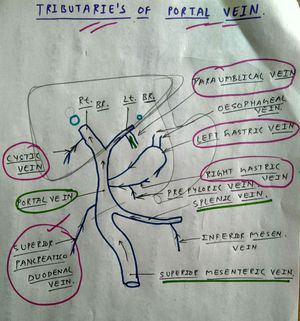 TRIBUTARIE'S OF PORTAL VEIN.
Rt. BR.
Lt. BR.
PARAUMBLICAL VEIN
OESOPHAGEAL
VEIN.
LEFT GASTRIC VEIN
CYSTIC
VEIN
RIGHT GASTRIC
VEIN
PREPYLORIC VEIN
PORTAL VEIN
SPLENIC VEIN.
SUPERIOR
PANCREATICO
DUODENAL
VEIN.
INFERIOR MESEN.
VEIN
SUPERIOR MESENTERIC VEIN